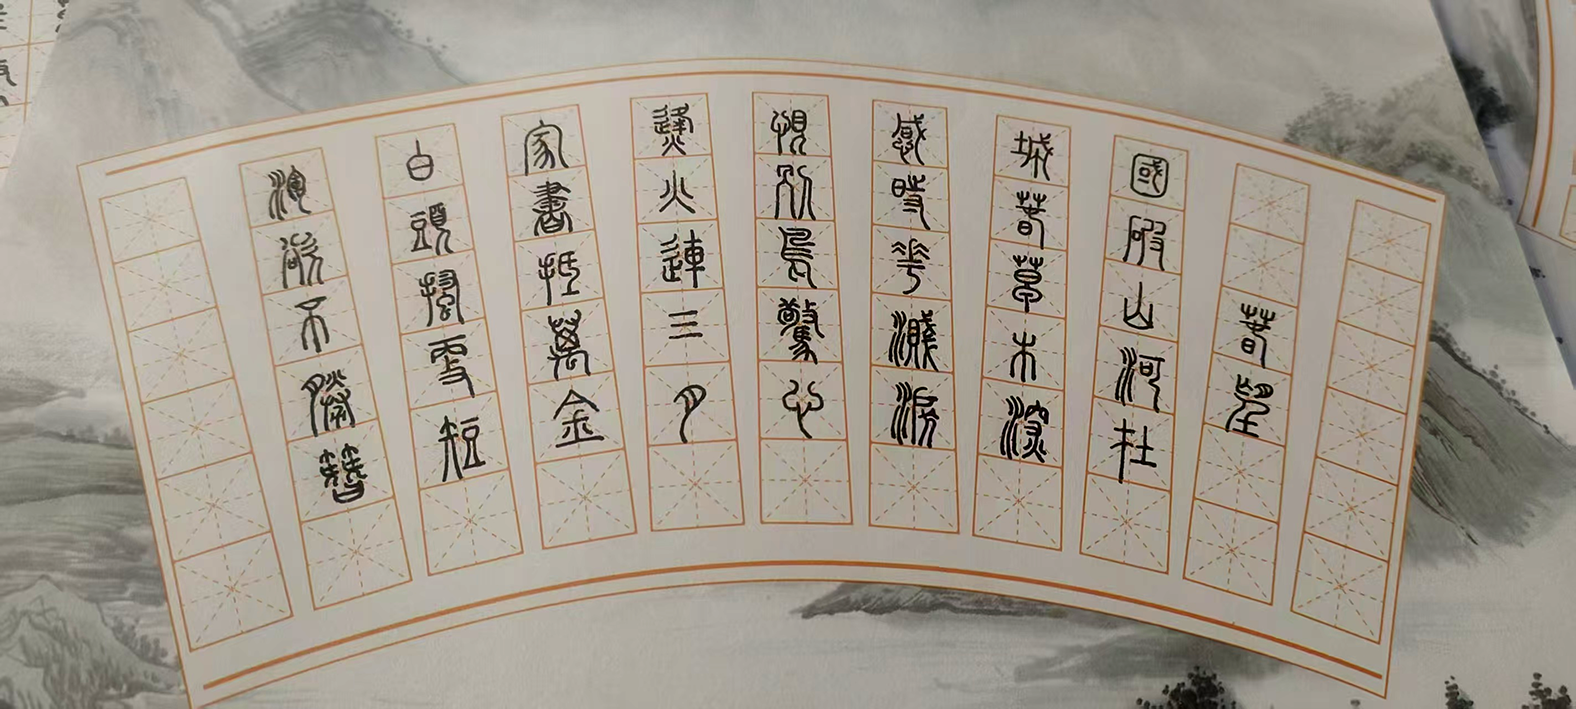 春望
國破山河在
城春草木深
感時花濺淚
恨別鳥驚心
烽火連三月
家書抵萬金
白頭搔更短
渾欲不勝簪